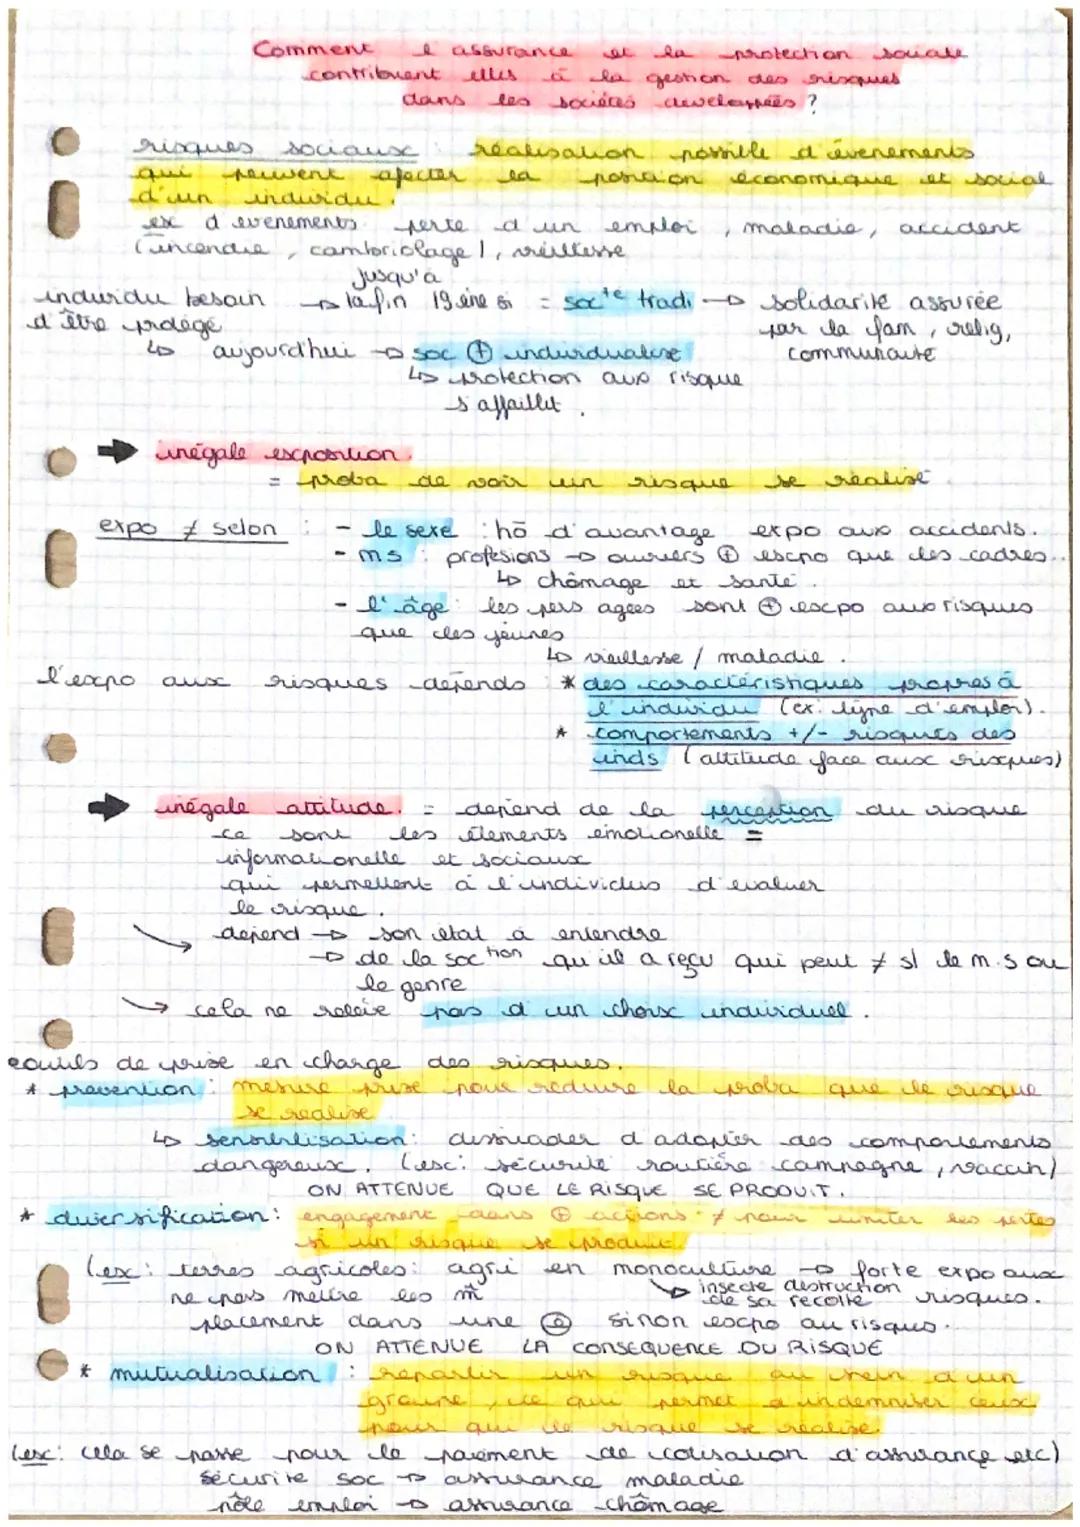 Comment l'assurance et la protection sociale
contribuent elles à la gestion des risques
dans les sociétés developpées ?
risques sociaux : réalisation possible d'évenements
qui peuvent afecter la position économique et social
d'un individu.
ex d'evenements perte d'un emploi, maladie, accident
(incendie, cambriolage), vieillesse
jusqu'à
individu besoin → la fin 19 ème si = soc^té tradi → solidarité assurée
d'être protégé par la fam, relig,
↳ aujourd'hui → soc ⊕ individualisé communauté
↳ protection aux risque
s'affaillit.
➡ inégale exposition.
= proba de voir un risque se réalisé
expo ≠ selon : - le sexe : ho d'avantage expo aux accidents.
- ms : profesions → ouvriers ⊕ expo que les cadres..
↳ chômage et santé.
- l'âge : les pers agées sont ⊕ expo aux risques
que les jeunes
↳ vieillesse / maladie.
l'expo aux risques dépends : * des caractéristiques propres à
l'individu (ex: type d'emploi).
* comportements +/- risqués des
inds (attitude face aux risques)
➡ inégale attitude. = dépend de la perception du risque
ce sont les élements émotionelle =
informationelle et sociaux
qui permettent à l'individus d'evaluer
le risque.
dépend → son état à entendre
→ de la soc^tion qu'il a reçu qui peut ≠ sl le m.s ou
le genre
→ cela ne relève pas d'un choix individuel.
outils de prise en charge des risques.
* prévention : mesure prise pour réduire la proba que le risque
se réalise
↳ sensibilisation : dissuader d'adopter des comportements
dangereux. (ex: sécurité routière campagne, vaccin)
ON ATTENUE QUE LE RISQUE SE PRODUIT.
* diversification : engagement dans ⊕ actions ≠ pour limiter les pertes
si un risque se produit.
(ex: terres agricoles : agri en monoculture → forte expo aux
ne pas mettre les → insecte destruction risques.
de sa récolte
placement dans une sinon expo au risques.
ON ATTENUE LA CONSEQUENCE DU RISQUE
* mutualisation : repartir un risque au sein d'un
groupe, ce qui permet d'indemniser ceux
pour qui le risque se réalise.
(ex: cela se passe pour le paiement de cotisation d'assurance etc)
sécurité soc → assurance maladie
pôle emploi → assurance chômage